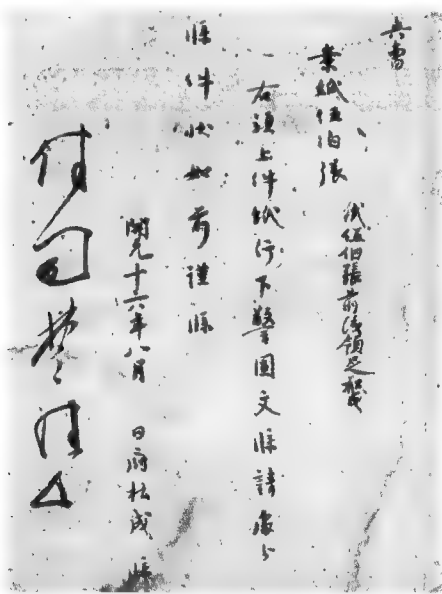 六曹
案紙伍伯張
貳伍伯張前後領足
右須上件紙行下警固文牒請處分
牒件狀如前謹牒
開元十六年八月 日府杜成牒
付司楚珪